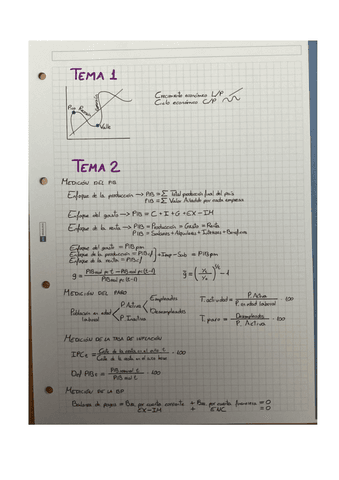 TEMA 1
Crecimiento económico L/P
Ciclo económico C/P
Pico
Valle
TEMA 2
MEDICIÓN DEL PIB
Enfoque de la producción → PIB = Σ Total producción final del país
PIB = Σ Valor Añadido por cada empresa
Enfoque del gasto → PIB = C + I + G + EX - IM
Enfoque de la renta → PIB = Producción = Gasto = Renta
PIB = Salarios + Alquileres + Intereses + Beneficios
Enfoque del gasto = PIBpm
Enfoque de la producción = PIBcf
Enfoque de la renta = PIBcf
+ Imp - Sub = PIBpm
MEDICIÓN DEL PARO
Población en edad laboral
P. Activa
P. Inactiva
Empleados
Desempleados
T. actividad = P. Activa / P. en edad laboral · 100
T. paro = Desempleados / P. Activa · 100
MEDICIÓN DE LA TASA DE INFLACIÓN
IPCt = Coste de la cesta en el año t / Coste de la cesta en el año base · 100
Def PIBt = PIB nominal t / PIB real t · 100
MEDICIÓN DE LA BP
Balanza de pagos = Bza. por cuenta corriente + Bza. por cuenta financiera = 0
EX - IM + ENC = 0